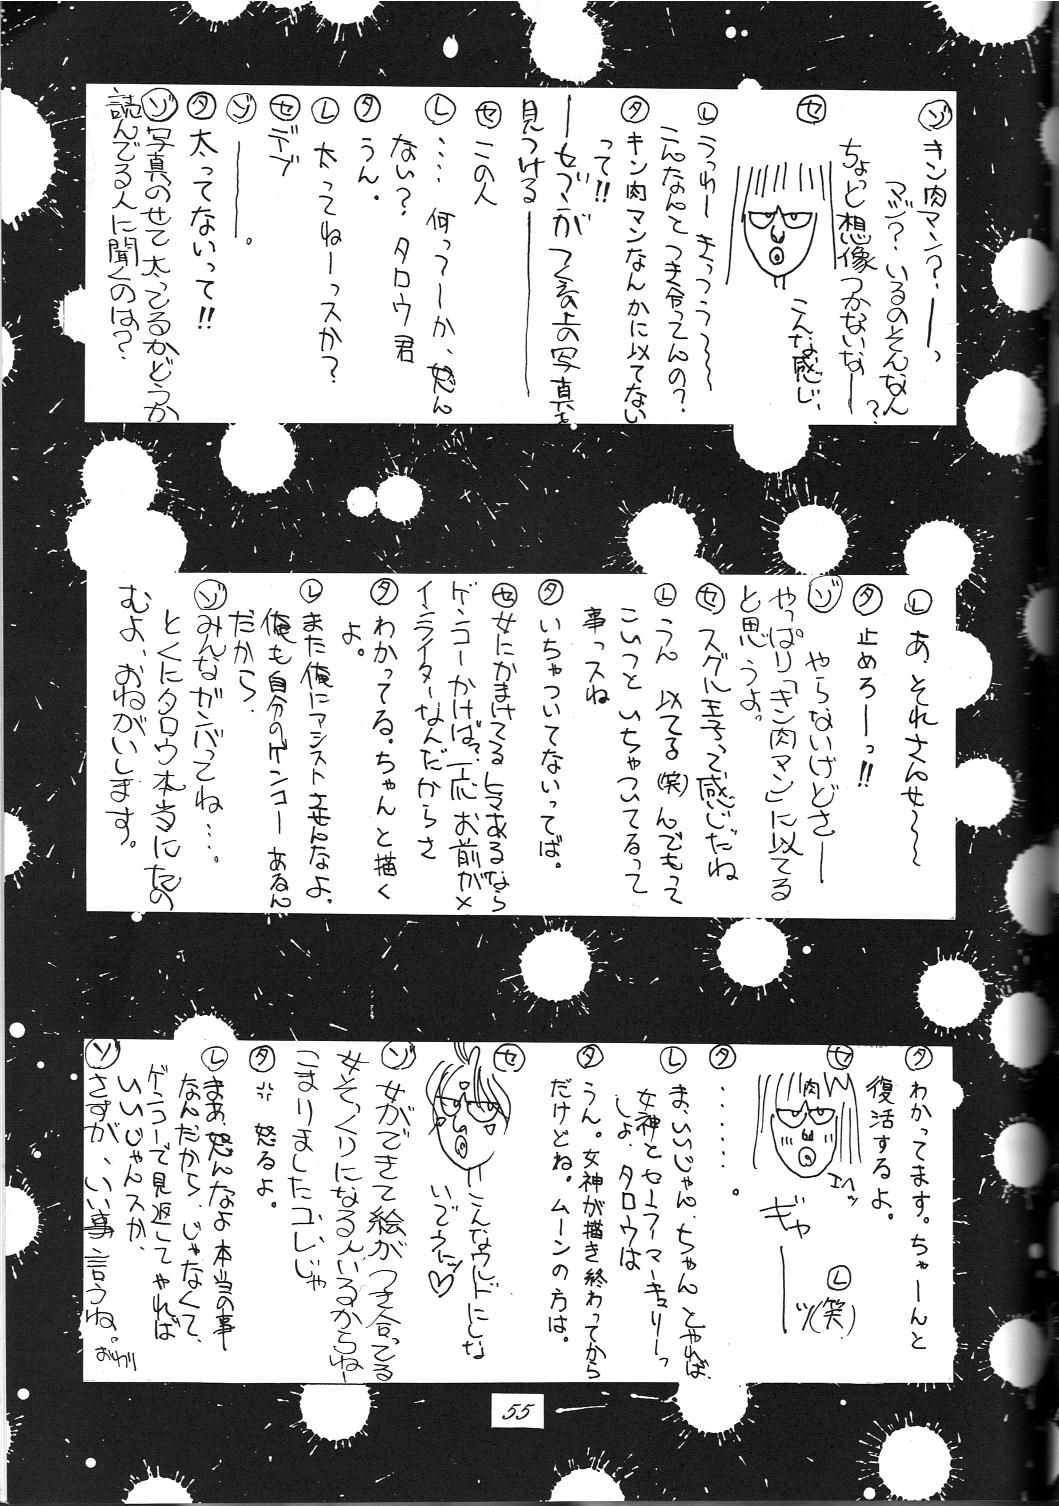 ゾ キン肉マン？――っ
マジ？いるのそんなん？
ちょっと想像つかないなー
セ
こんな感じ、
レ うっわー きっつうー～～
こんなんとつき合ってんの？
タ キン肉マンなんかに以てない
って!!
見つける――
セ この人
レ …。何ってーか、怒ん
ない？タロウ君
タ うん。
レ 太ってねーっスか？
セ デブ
ゾ ――。
タ 太ってないって!!
ゾ 写真のせて太ってるかどうか
読んでる人に聞くのは？
レ あ、それさんせ～～
タ 止めろーっ!!
ゾ やらないけどさー
やっぱり「キン肉マン」に以てる
と思うよ。
セ スグル王子って感じだね
レ うん 以てる(笑)んでもって
こいつといちゃついてるって
事っスね
タ いちゃついてないってば。
セ 女にかまけてるヒマあるなら
ゲンコーかけば？一応お前がメ
インライターなんだからさ
タ わかってる。ちゃんと描く
よ。
レ また俺にアシストさせんなよ。
俺も自分のゲンコーあるん
だから、
ゾ みんながンバってね…。
とくにタロウ本当にたの
むよ、おねがいします。
タ わかってます。ちゃーんと
復活するよ。
セ
肉
エヘッ
ギャ――ッ
レ (笑)
タ ・・・・・・。
レ ま、いいじゃん、ちゃんとやれば
女神とセーラーマーキュリーっ
しょ、タロウは
タ うん。女神が描き終わってから
だけどね。ムーンの方は。
セ
こんなウルドにしな
いでうに♡
ゾ 女ができて絵がつき合ってる
女そっくりになる人いるからねー
こまりましたコレじゃ
タ 怒るよ。
レ まあ、怒んなよ本当の事
なんだから、じゃなくて、
ゲンコーで見返してやれば
いいじゃんスか、
ゾ さすが、いい事言うね。
おわり
55